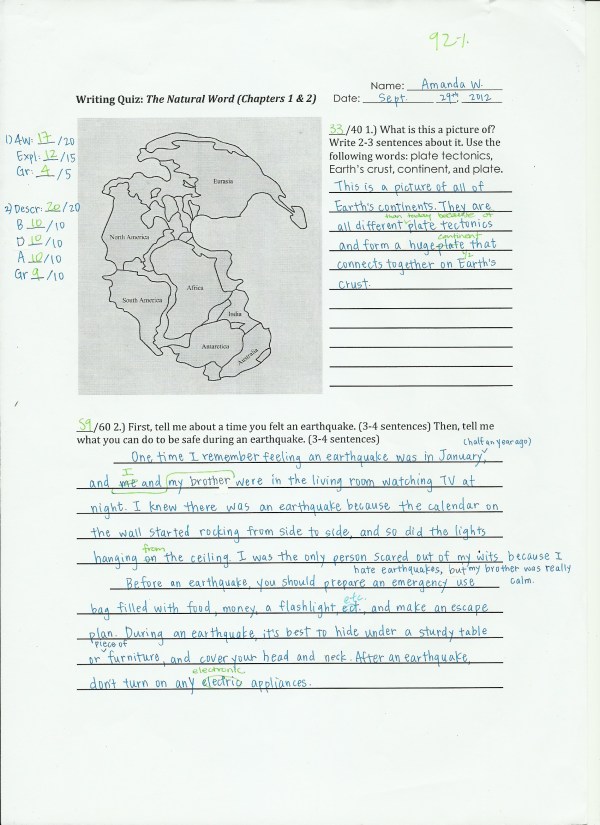 92%
Name: Amanda W.
Writing Quiz: The Natural Word (Chapters 1 & 2)
Date: Sept. 29th, 2012
1) AW: 17/20
Expl: 12/15
Gr: 4/5
2) Descr: 20/20
B 10/10
D 10/10
A 10/10
Gr 9/10
Eurasia
North America
Africa
South America
India
Antarctica
Australia
33/40 1.) What is this a picture of?
Write 2-3 sentences about it. Use the
following words: plate tectonics,
Earth's crust, continent, and plate.
This is a picture of all of
Earth's continents. They are
than today because of
all different plate tectonics
continent
and form a huge plate that
connects together on Earth's
crust.
59/60 2.) First, tell me about a time you felt an earthquake. (3-4 sentences) Then, tell me
what you can do to be safe during an earthquake. (3-4 sentences)
(half an year ago)
One time I remember feeling an earthquake was in January,
I
and me and my brother were in the living room watching TV at
night. I knew there was an earthquake because the calendar on
the wall started rocking from side to side, and so did the lights
from
hanging on the ceiling. I was the only person scared out of my wits because I
hate earthquakes, but my brother was really
calm.
Before an earthquake, you should prepare an emergency use
etc.
bag filled with food, money, a flashlight, ect., and make an escape
plan. During an earthquake, it's best to hide under a sturdy table
piece of
or furniture, and cover your head and neck. After an earthquake,
electronic
don't turn on any electric appliances.